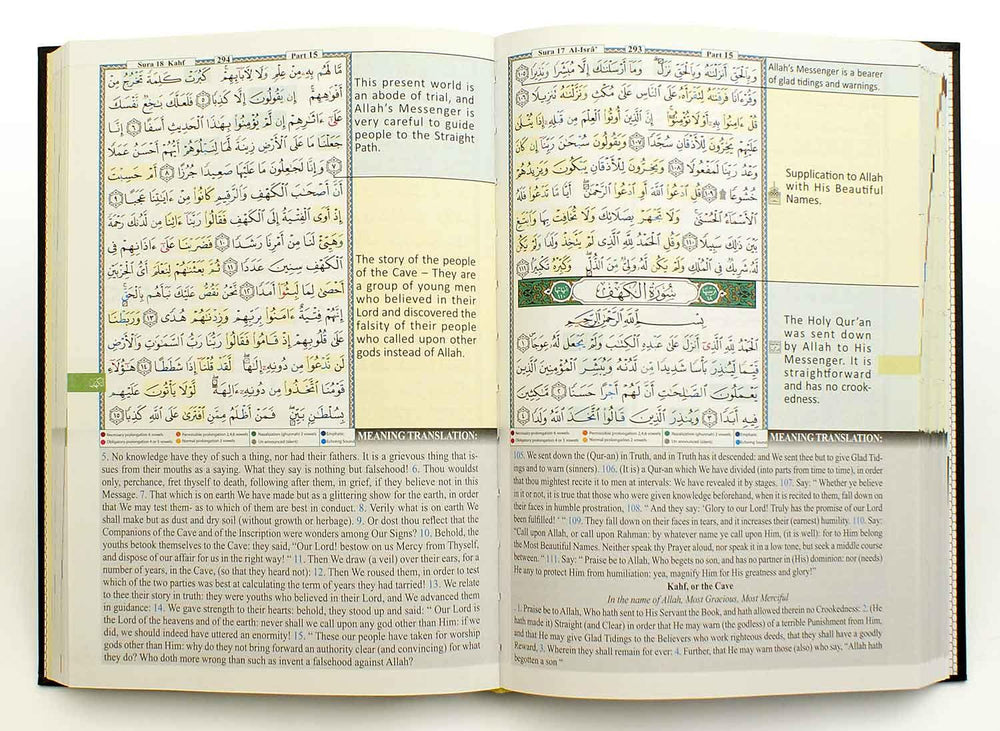 Sura 17 Al-Isrâ' 293 Part 15
وَبِالْحَقِّ أَنزَلْنَاهُ وَبِالْحَقِّ نَزَلَ وَمَا أَرْسَلْنَاكَ إِلَّا مُبَشِّرًا وَنَذِيرًا ١٠٥
وَقُرْءَانًا فَرَقْنَاهُ لِتَقْرَأَهُ عَلَى النَّاسِ عَلَى مُكْثٍ وَنَزَّلْنَاهُ تَنزِيلًا ١٠٦
قُلْ ءَامِنُوا بِهِ أَوْ لَا تُؤْمِنُوا إِنَّ الَّذِينَ أُوتُوا الْعِلْمَ مِن قَبْلِهِ إِذَا يُتْلَى
عَلَيْهِمْ يَخِرُّونَ لِلْأَذْقَانِ سُجَّدًا ١٠٧ وَيَقُولُونَ سُبْحَانَ رَبِّنَا إِن كَانَ
وَعْدُ رَبِّنَا لَمَفْعُولًا ١٠٨ وَيَخِرُّونَ لِلْأَذْقَانِ يَبْكُونَ وَيَزِيدُهُمْ
خُشُوعًا ١٠٩ قُلِ ادْعُوا اللَّهَ أَوِ ادْعُوا الرَّحْمَنَ أَيًّا مَّا تَدْعُوا فَلَهُ
الْأَسْمَاءُ الْحُسْنَى وَلَا تَجْهَرْ بِصَلَاتِكَ وَلَا تُخَافِتْ بِهَا وَابْتَغِ
بَيْنَ ذَلِكَ سَبِيلًا ١١٠ وَقُلِ الْحَمْدُ لِلَّهِ الَّذِي لَمْ يَتَّخِذْ وَلَدًا وَلَمْ يَكُن
لَّهُ شَرِيكٌ فِي الْمُلْكِ وَلَمْ يَكُن لَّهُ وَلِيٌّ مِّنَ الذُّلِّ وَكَبِّرْهُ تَكْبِيرًا ١١١
سُورَةُ الْكَهْفِ
بِسْمِ اللَّهِ الرَّحْمَنِ الرَّحِيمِ
الْحَمْدُ لِلَّهِ الَّذِي أَنزَلَ عَلَى عَبْدِهِ الْكِتَابَ وَلَمْ يَجْعَل لَّهُ عِوَجًا ١
قَيِّمًا لِّيُنذِرَ بَأْسًا شَدِيدًا مِّن لَّدُنْهُ وَيُبَشِّرَ الْمُؤْمِنِينَ الَّذِينَ
يَعْمَلُونَ الصَّالِحَاتِ أَنَّ لَهُمْ أَجْرًا حَسَنًا ٢ مَّاكِثِينَ
فِيهِ أَبَدًا ٣ وَيُنذِرَ الَّذِينَ قَالُوا اتَّخَذَ اللَّهُ وَلَدًا ٤
Allah's Messenger is a bearer
of glad tidings and warnings.
Supplication to Allah
with His Beautiful
Names.
The Holy Qur'an
was sent down
by Allah to His
Messenger. It is
straightforward
and has no crook-
edness.
Necessary prolongation 6 vowels Permissible prolongation 2,4,6 vowels Nazalization (ghunnah) 2 vowels Emphatic
Obligatory prolongation 4 or 5 vowels Normal prolongation 2 vowels Un announced (silent) Echoing Sound
MEANING TRANSLATION:
105. We sent down (the Qur-an) in Truth, and in Truth has it descended: and We sent thee but to give Glad Tid-
ings and to warn (sinners). 106. (It is) a Qur-an which We have divided (into parts from time to time), in order
that thou mightest recite it to men at intervals: We have revealed it by stages. 107. Say: " Whether ye believe
in it or not, it is true that those who were given knowledge beforehand, when it is recited to them, fall down on
their faces in humble prostration, 108. " And they say: 'Glory to our Lord! Truly has the promise of our Lord
been fulfilled! ' " 109. They fall down on their faces in tears, and it increases their (earnest) humility. 110. Say:
"Call upon Allah, or call upon Rahman: by whatever name ye call upon Him, (it is well): for to Him belong
the Most Beautiful Names. Neither speak thy Prayer aloud, nor speak it in a low tone, but seek a middle course
between." 111. Say: " Praise be to Allah, Who begets no son, and has no partner in (His) dominion: nor (needs)
He any to protect Him from humiliation: yea, magnify Him for His greatness and glory!"
Kahf, or the Cave
In the name of Allah, Most Gracious, Most Merciful
1. Praise be to Allah, Who hath sent to His Servant the Book, and hath allowed therein no Crookedness: 2. (He
hath made it) Straight (and Clear) in order that He may warn (the godless) of a terrible Punishment from Him,
and that He may give Glad Tidings to the Believers who work righteous deeds, that they shall have a goodly
Reward, 3. Wherein they shall remain for ever: 4. Further, that He may warn those (also) who say, "Allah hath
begotten a son "
Sura 18 Kahf 294 Part 15
مَّا لَهُم بِهِ مِنْ عِلْمٍ وَلَا لِآبَائِهِمْ كَبُرَتْ كَلِمَةً تَخْرُجُ مِنْ
أَفْوَاهِهِمْ إِن يَقُولُونَ إِلَّا كَذِبًا ٥ فَلَعَلَّكَ بَاخِعٌ نَّفْسَكَ
عَلَى ءَاثَارِهِمْ إِن لَّمْ يُؤْمِنُوا بِهَذَا الْحَدِيثِ أَسَفًا ٦ إِنَّا
جَعَلْنَا مَا عَلَى الْأَرْضِ زِينَةً لَّهَا لِنَبْلُوَهُمْ أَيُّهُمْ أَحْسَنُ عَمَلًا
٧ وَإِنَّا لَجَاعِلُونَ مَا عَلَيْهَا صَعِيدًا جُرُزًا ٨ أَمْ حَسِبْتَ
أَنَّ أَصْحَابَ الْكَهْفِ وَالرَّقِيمِ كَانُوا مِنْ ءَايَاتِنَا عَجَبًا ٩
إِذْ أَوَى الْفِتْيَةُ إِلَى الْكَهْفِ فَقَالُوا رَبَّنَا ءَاتِنَا مِن لَّدُنكَ رَحْمَةً
وَهَيِّئْ لَنَا مِنْ أَمْرِنَا رَشَدًا ١٠ فَضَرَبْنَا عَلَى ءَاذَانِهِمْ فِي
الْكَهْفِ سِنِينَ عَدَدًا ١١ ثُمَّ بَعَثْنَاهُمْ لِنَعْلَمَ أَيُّ الْحِزْبَيْنِ
أَحْصَى لِمَا لَبِثُوا أَمَدًا ١٢ نَّحْنُ نَقُصُّ عَلَيْكَ نَبَأَهُم بِالْحَقِّ
إِنَّهُمْ فِتْيَةٌ ءَامَنُوا بِرَبِّهِمْ وَزِدْنَاهُمْ هُدًى ١٣ وَرَبَطْنَا
عَلَى قُلُوبِهِمْ إِذْ قَامُوا فَقَالُوا رَبُّنَا رَبُّ السَّمَاوَاتِ وَالْأَرْضِ
لَن نَّدْعُوَا مِن دُونِهِ إِلَهًا لَّقَدْ قُلْنَا إِذًا شَطَطًا ١٤ هَؤُلَاءِ
قَوْمُنَا اتَّخَذُوا مِن دُونِهِ ءَالِهَةً لَّوْلَا يَأْتُونَ عَلَيْهِم
بِسُلْطَانٍ بَيِّنٍ فَمَنْ أَظْلَمُ مِمَّنِ افْتَرَى عَلَى اللَّهِ كَذِبًا ١٥
This present world is
an abode of trial, and
Allah's Messenger is
very careful to guide
people to the Straight
Path.
The story of the people
of the Cave – They are
a group of young men
who believed in their
Lord and discovered the
falsity of their people
who called upon other
gods instead of Allah.
الكهف
Necessary prolongation 6 vowels Permissible prolongation 2,4,6 vowels Nazalization (ghunnah) 2 vowels Emphatic
Obligatory prolongation 4 or 5 vowels Normal prolongation 2 vowels Un announced (silent) Echoing Sound
MEANING TRANSLATION:
5. No knowledge have they of such a thing, nor had their fathers. It is a grievous thing that is-
sues from their mouths as a saying. What they say is nothing but falsehood! 6. Thou wouldst
only, perchance, fret thyself to death, following after them, in grief, if they believe not in this
Message. 7. That which is on earth We have made but as a glittering show for the earth, in order
that We may test them- as to which of them are best in conduct. 8. Verily what is on earth We
shall make but as dust and dry soil (without growth or herbage). 9. Or dost thou reflect that the
Companions of the Cave and of the Inscription were wonders among Our Signs? 10. Behold, the
youths betook themselves to the Cave: they said, "Our Lord! bestow on us Mercy from Thyself,
and dispose of our affair for us in the right way! " 11. Then We draw (a veil) over their ears, for a
number of years, in the Cave, (so that they heard not): 12. Then We roused them, in order to test
which of the two parties was best at calculating the term of years they had tarried! 13. We relate
to thee their story in truth: they were youths who believed in their Lord, and We advanced them
in guidance: 14. We gave strength to their hearts: behold, they stood up and said: " Our Lord is
the Lord of the heavens and of the earth: never shall we call upon any god other than Him: if we
did, we should indeed have uttered an enormity! 15. " These our people have taken for worship
gods other than Him: why do they not bring forward an authority clear (and convincing) for what
they do? Who doth more wrong than such as invent a falsehood against Allah?